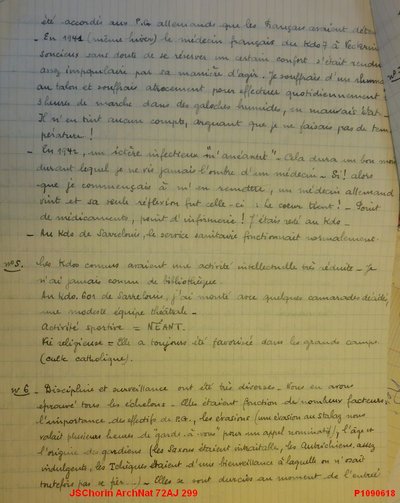 été accordés aux P.G. allemands que les Français avaient
- En 1941 (même hiver) le médecin français du Kdo 7 à
soucieux sans doute de se réserver un certain confort s'était rendu
assez impopulaire par sa manière d'agir. Je souffrais d'un rhume
au talon et souffrais atrocement pour effectuer quotidiennement
heures de marche dans des galoches humides, en mauvais état -
Il n'en tint aucun compte, arguant que je ne faisais pas de tem
pérature !
- En 1942, un ictère infectieux m'anéantit - Cela dura un bon mois
durant lequel je ne vis jamais l'ombre d'un médecin - Si ! alors
que je commençais à m'en remettre, un médecin allemand
vint et sa seule réflexion fut celle-ci : le coeur tient ! - Point
de médicaments, point d'infirmerie ! J'étais resté au Kdo -
- Au Kdo de Sarrelouis, le service sanitaire fonctionnait normalement.
n° 5. Les Kdos connus avaient une activité intellectuelle très réduite - Je
n'ai jamais connu de bibliothèque.
Au Kdo. 601 de Sarrelouis, j'ai monté avec quelques camarades décidés,
une modeste équipe théâtrale -
Activité sportive = NÉANT.
Vie religieuse = Elle a toujours été favorisée dans les grands camps
(culte catholique).
n° 6 - Discipline et surveillance ont été très diverses - Nous en avons
éprouvé tous les échelons - Elles étaient fonction de nombreux facteurs,
l'importance des effectifs de P.G., les évasions (une évasion au stalag nous
valait plusieurs heures de "garde à vous" pour un appel nominatif), l'âge et
l'origine des gardiens (les Saxons étaient intraitables, les Autrichiens assez
indulgents, les Tchèques étaient d'une bienveillance à laquelle on n'osait
toutefois pas se fier...) - Elles se sont durcies au moment de l'entrée
JSChorin ArchNat 72AJ 299
P1090618